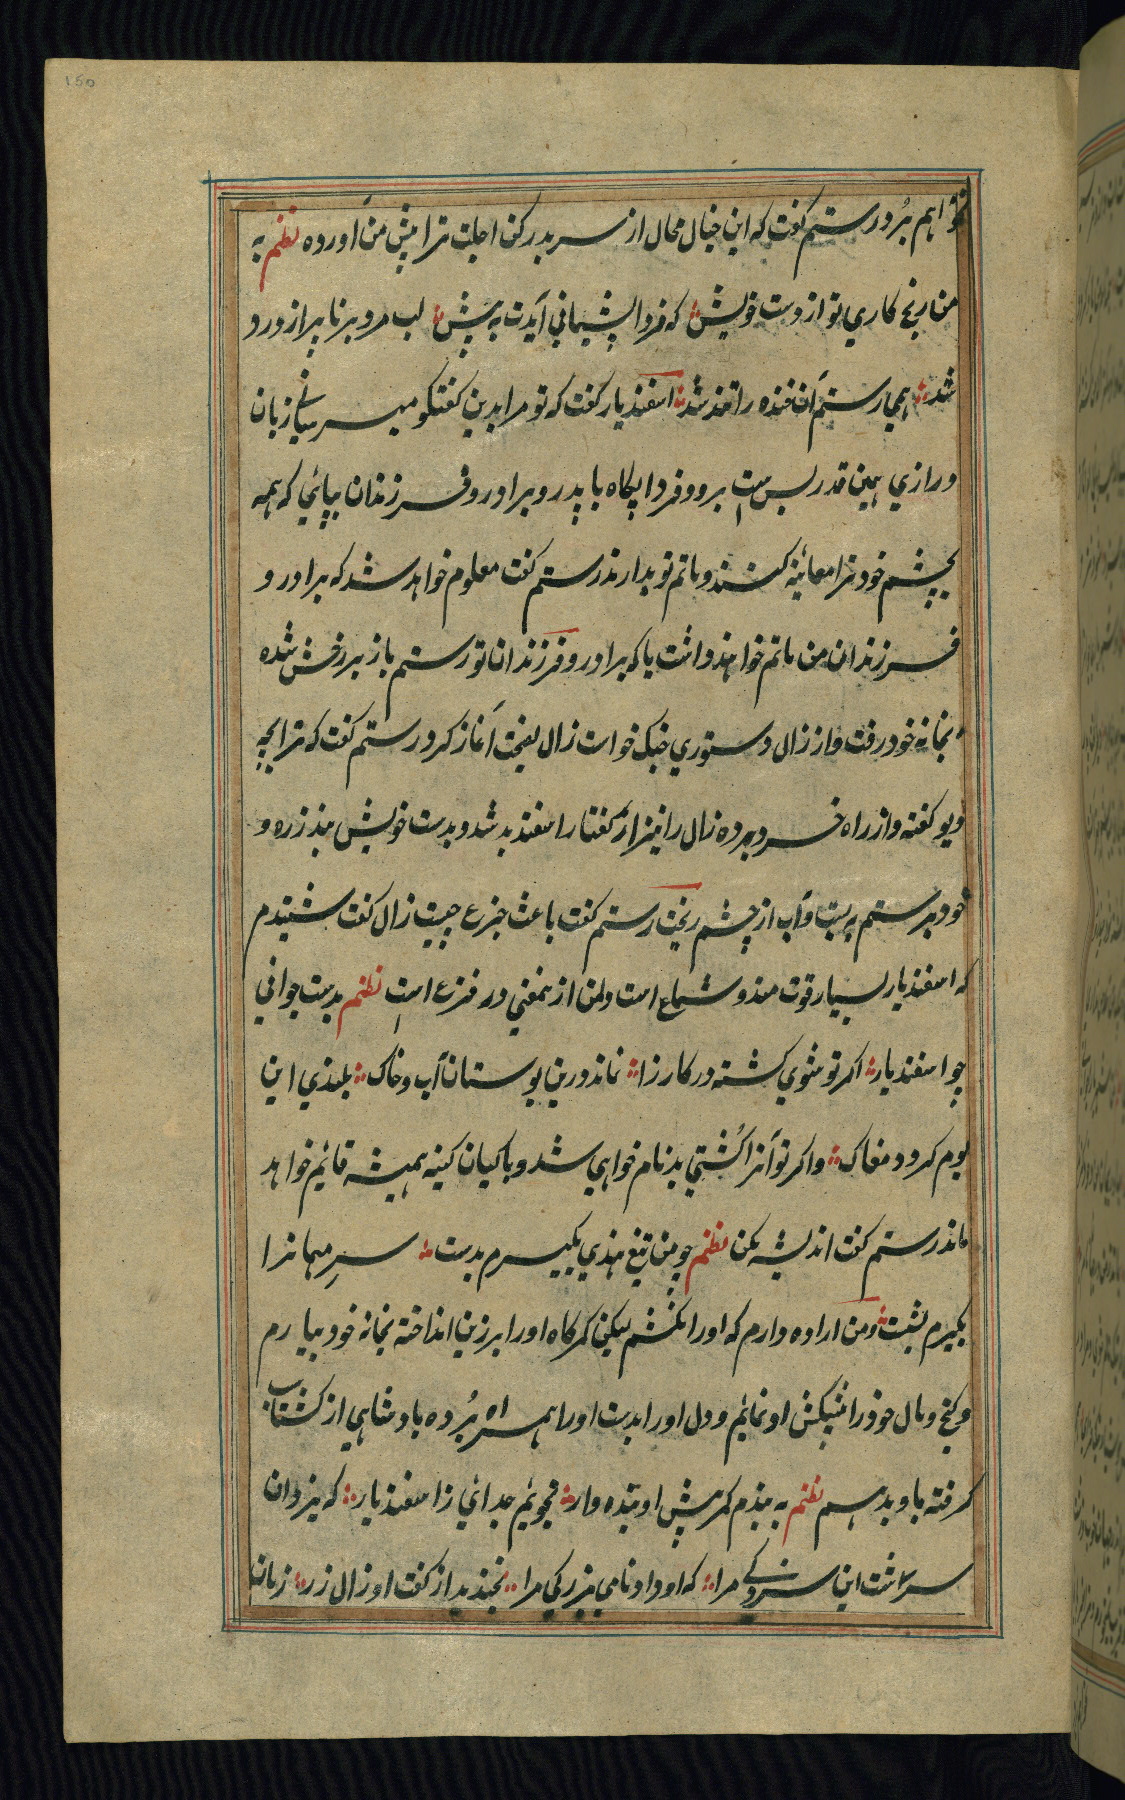 150
خواهم برد رستم گفت که این خیال محال از سر بدر کن اجلت ترا پیش من آورده نظم به
من برنج کاری تو از دست خویش که فردا پشیمانی آیدت به پیش لب مرد برنا پر از درد
شد همی‌ رستم آن خنده را تند شد اسفندیار گفت که تو مرا بدین گفتگو میسر زبان
درازی همین قدر بس است برو و فردا پگاه با پدر و برادر و فرزندان بیایی که همه
بچشم خود ترا معائنه کنند و ماتم تو بدارند رستم گفت معلوم خواهد شد که برادر و
فرزندان من ماتم خواهند داشت یا که برادر و فرزندان تو رستم باز بر رخش شده
بخانه خود رفت و از زال دستوری جنگ خواست زال نصیحت آغاز کرد رستم گفت که ترا بچه
دیو گفته و از راه خرد برده زال را نیز از گفتار اسفند بد شد و بدست خویش بند زره و
خود بر رستم بر بست و آب از چشم ریخت رستم گفت باعث جزع چیست زال گفت شنیدم
که اسفندیار بسیار قوت مند و شجاع است و من ازینمعنی در فزع است نظم بدست جوانی
چو اسفندیار اگر تو شوی کشته در کارزار نماند درین بوستان آب و خاک بلندی این
بوم گردد مغاک و اگر تو آنرا کُشتی بدنام خواهی شد و با کیان کینه همیشه قائم خواهد
ماند رستم گفت اندیشه مکن نظم چو من تیغ هندی بگیرم بدست سرِ مهانرا
بگیرم بشت و من اراده دارم که او را نکشم لیکن کمرگاه او را بر زین انداخته بخانه خود بیارم
و گنج و مال خود را پیشکش او نمایم و دل او را بدست او را همراه بُرده بادشاهی از گشتاسب
گرفته باو بدهم نظم به بندم کمر پیش او بنده وار نجویم جدائی ز اسفندیار که یزدان
سرشت این مرا که او داد نامی بزرگی مرا بخندید از گفت او زال زر زمان